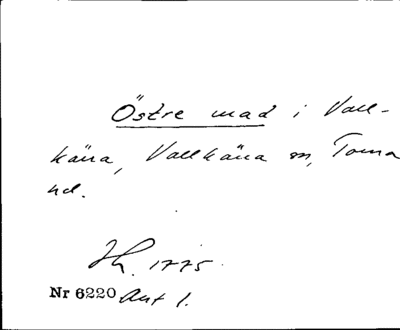 Östre mad i Vall-
kära, Vallkära sn, Torna
hd.
Zh. 1775.
Nr 6220 Akt 1.